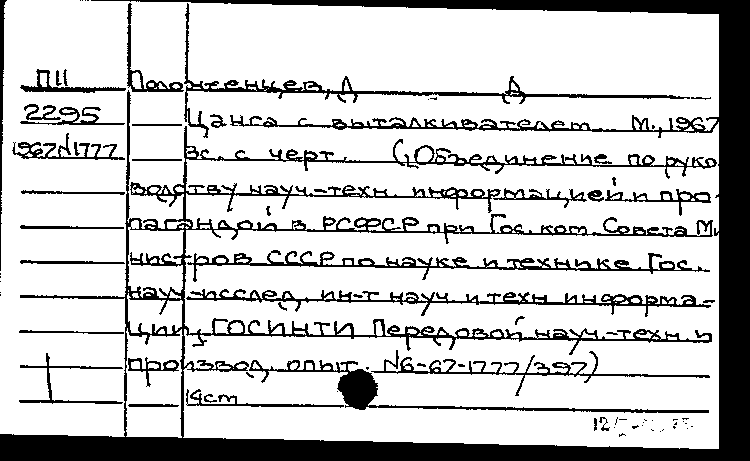 П11 Положенцев, Д Д
2295 Цанга с выталкивателем. М., 1967
1967N1777 3с. с черт. (Объединение по руко-
водству науч.-техн. информацией и про-
пагандой в РСФСР при Гос. ком. Совета Ми
нистров СССР по науке и технике. Гос.
науч-исслед. ин-т науч и техн информа-
ции, ГОСИНТИ Передовой науч.-техн. и
производ. опыт. N6-67-1777/397)
14cm